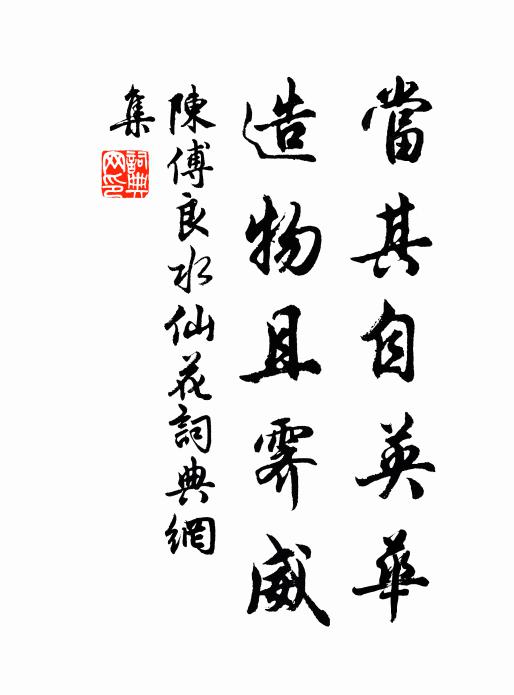 當其自英華
造物且霽威
陳傅良水仙花詞典網
集
詞典
网印